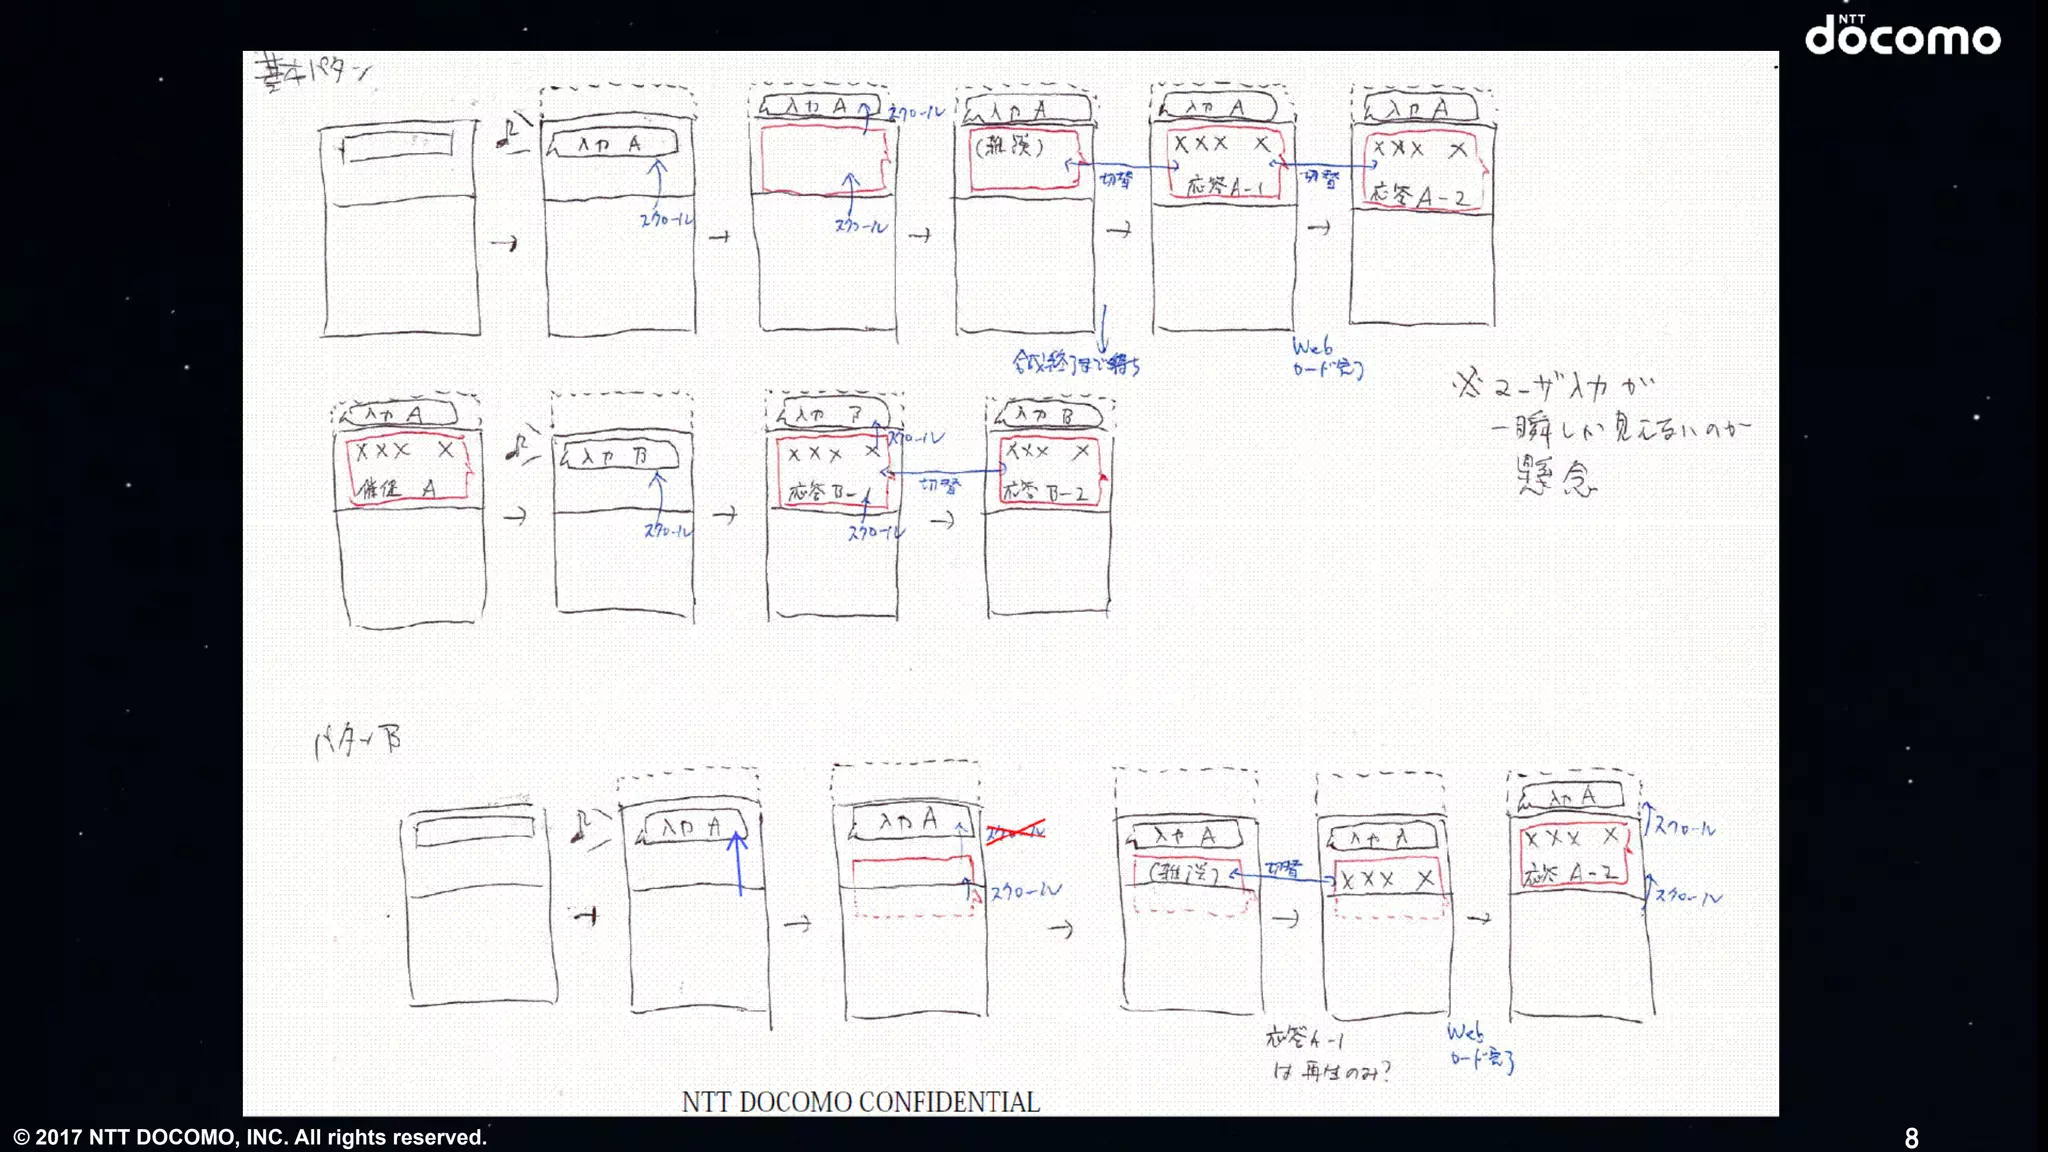 NTT
docomo
基本パターン
入力 A
スクロール
入力 A
スクロール
スクロール
入力 A
(雑談)
切替
合成終了まで待ち
入力 A
××× ×
応答A-1
切替
Web
ロード完了
入力 A
××× ×
応答A-2
※ユーザ入力が
一瞬しか見えないのが
懸念
入力 A
××× ×
催促 A
入力 B
スクロール
入力 B
スクロール
××× ×
応答B-1
スクロール
切替
入力 B
××× ×
応答B-2
パターンB
入力 A
入力 A
スクロール
スクロール
入力 A
(雑談)
切替
応答A-1
は再生のみ?
入力 A
××× ×
Web
ロード完了
入力 A
スクロール
××× ×
応答A-2
スクロール
NTT DOCOMO CONFIDENTIAL
© 2017 NTT DOCOMO, INC. All rights reserved.
8